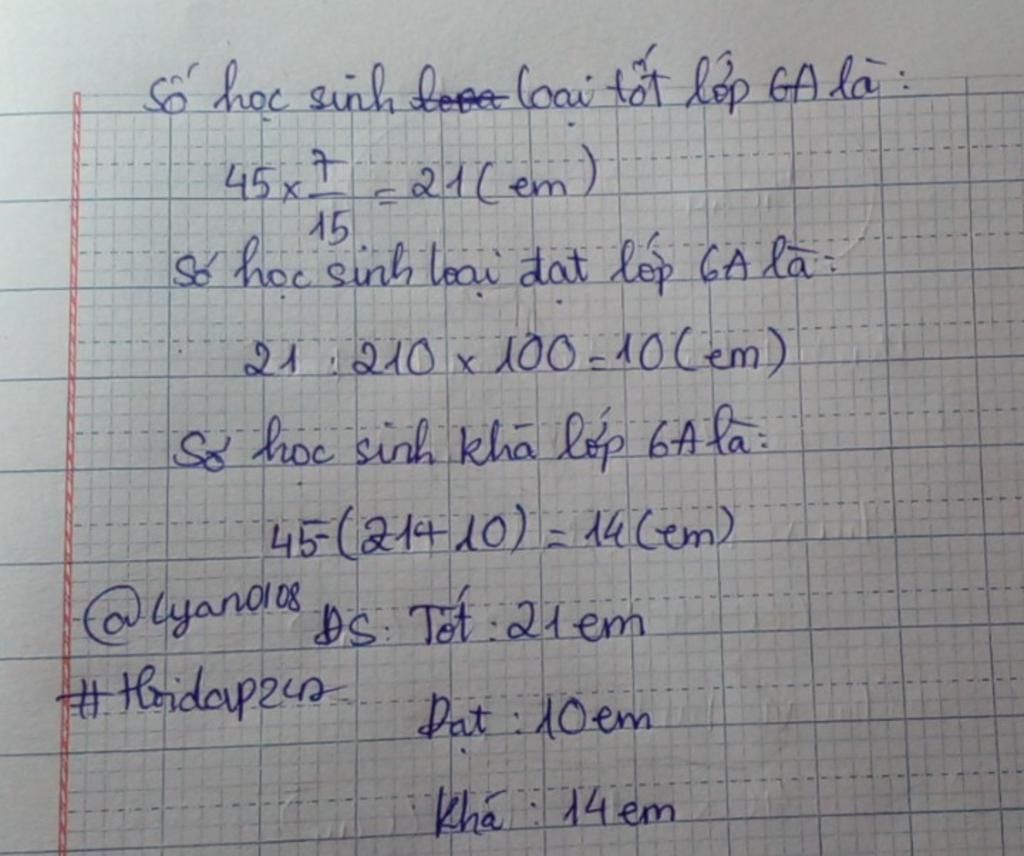 Số học sinh loại tốt lớp 6A là:
45 × 7/15 = 21 (em)
Số học sinh loại đạt lớp 6A là:
21 : 210 × 100 = 10 (em)
Số học sinh khá lớp 6A là:
45 - (21 + 10) = 14 (em)
@lyan0108 ĐS: Tốt : 21 em
#Hoidap247
Đạt : 10 em
Khá : 14 em